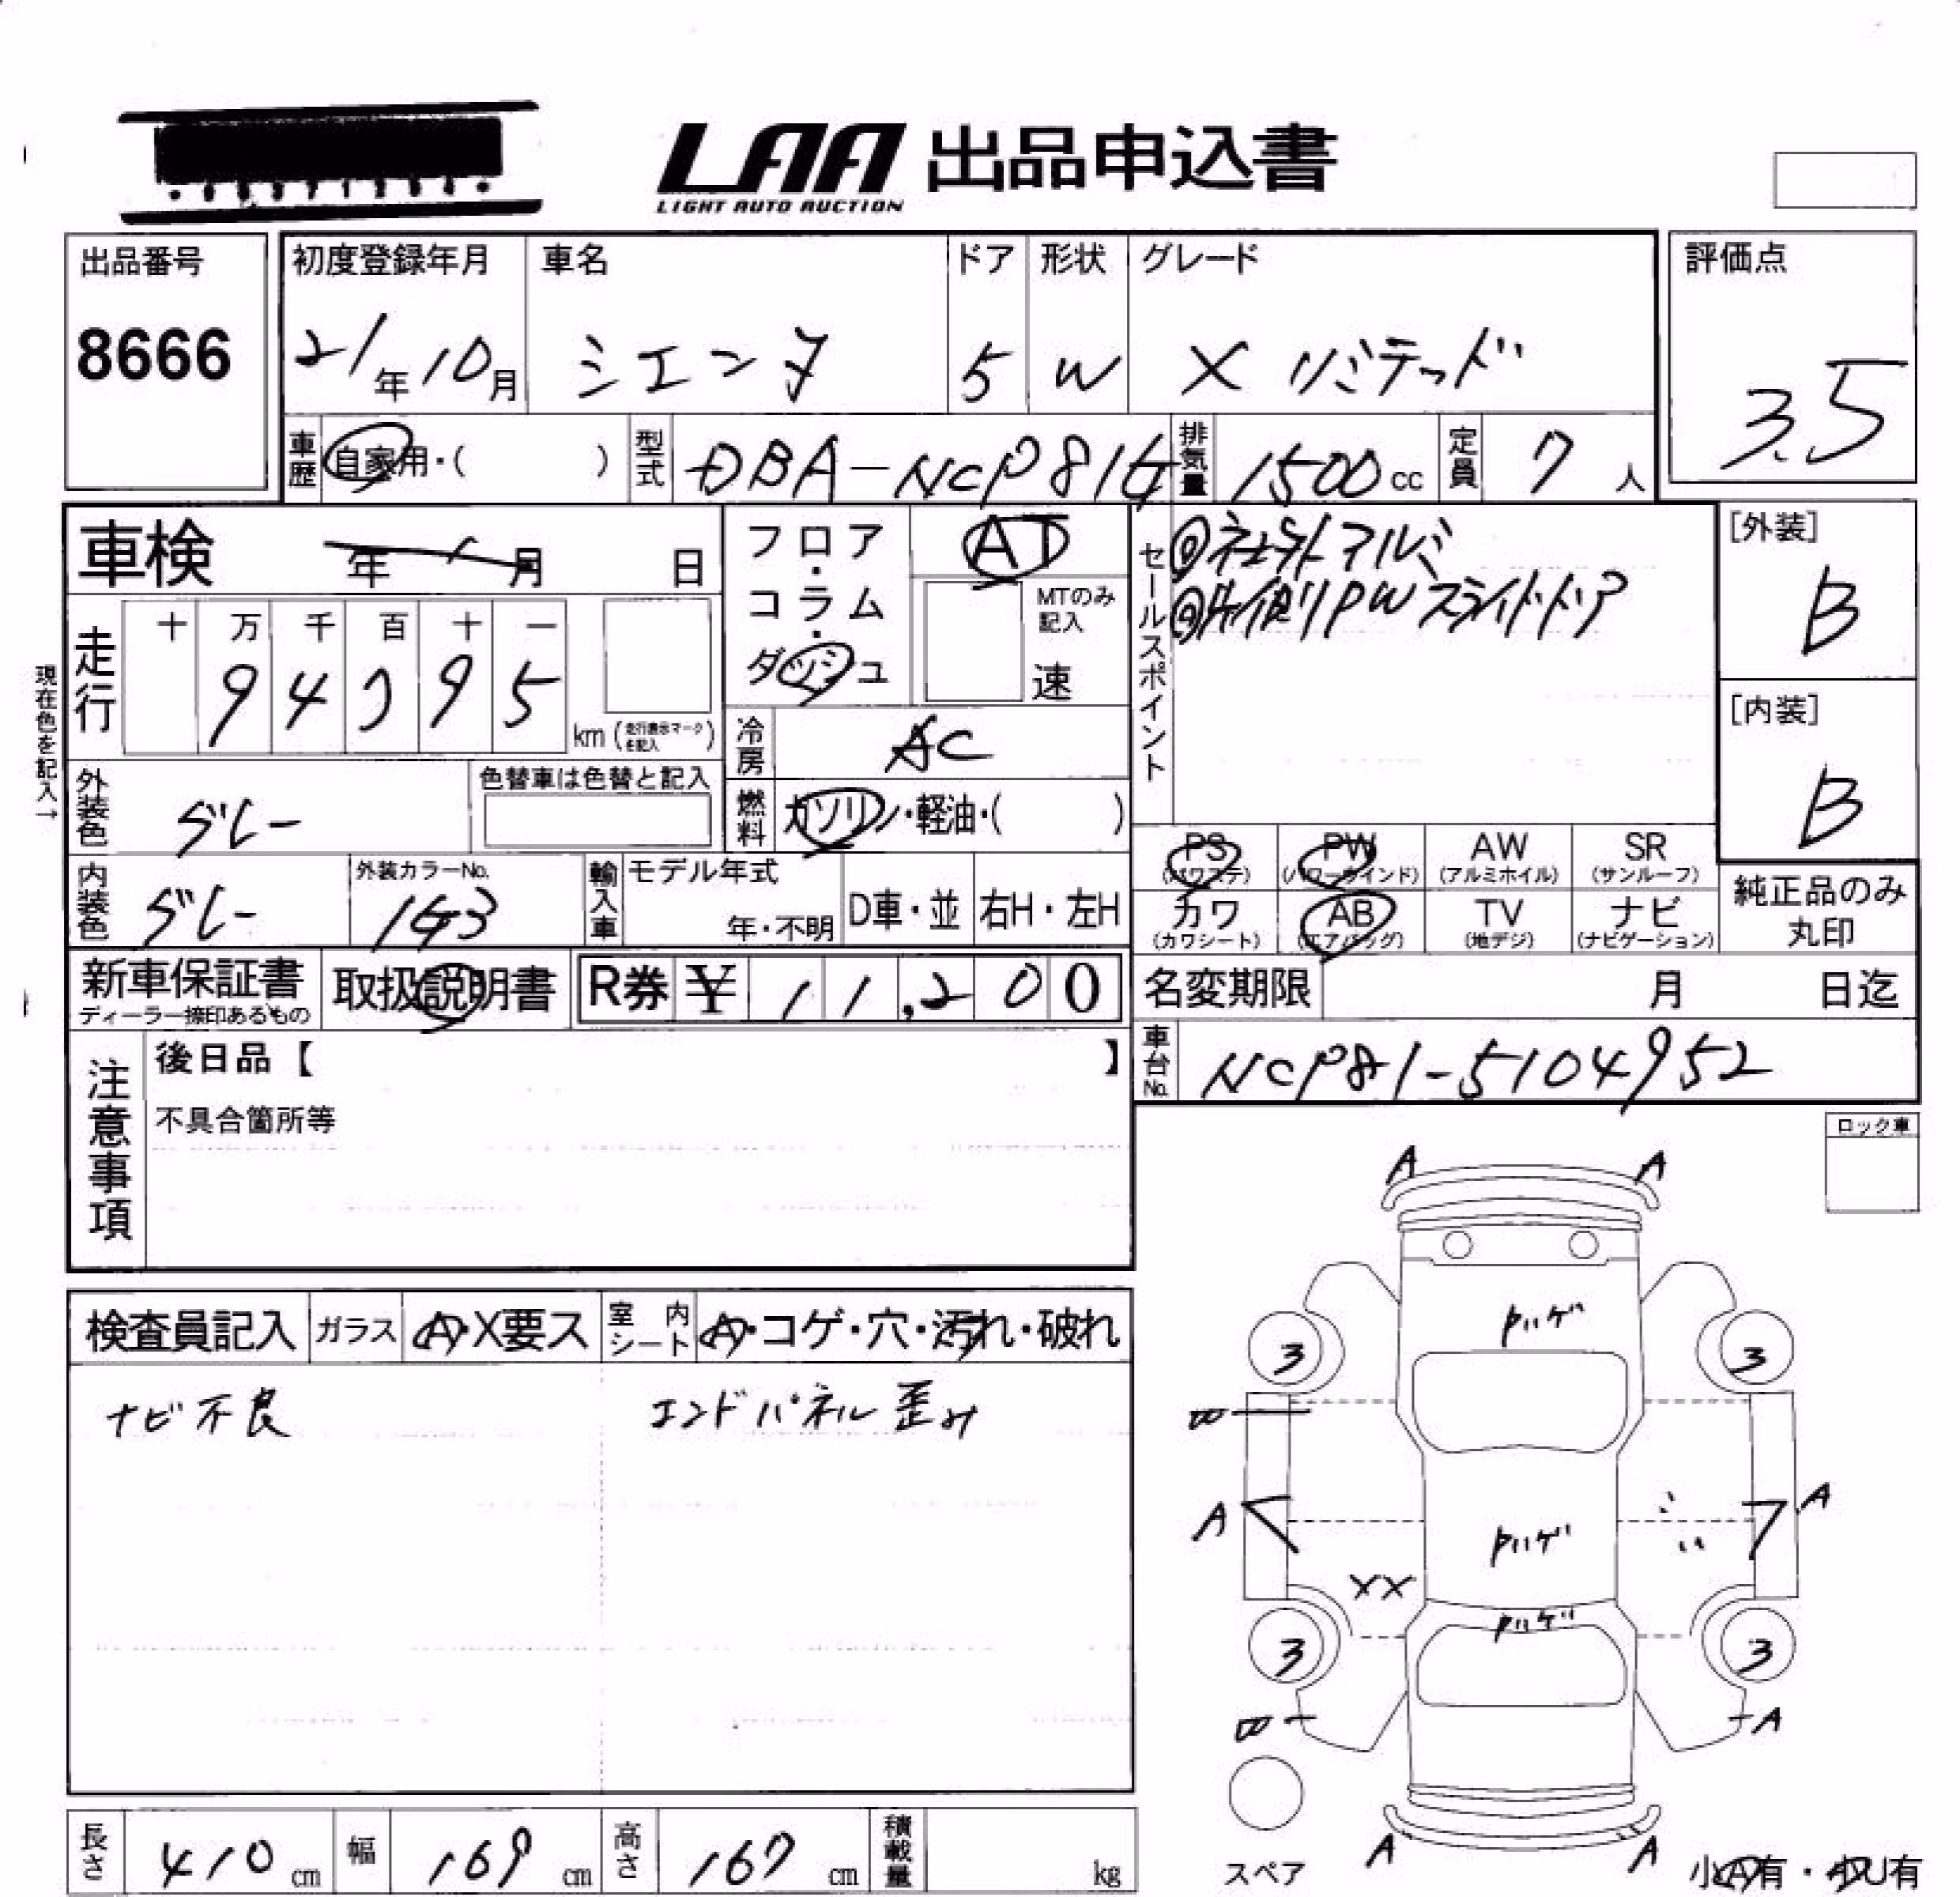 LAA 出品申込書
LIGHT AUTO AUCTION
出品番号
8666
初度登録年月
21年10月
車名
シエンタ
ドア
5
形状
W
グレード
X リミテッド
評価点
3.5
車歴
自家用・( )
型式
DBA-NCP81G
排気量
1500cc
定員
7人
車検 年 月 日
走行
十 万 千 百 十 一
9 4 3 9 5
km(走行表示マークを記入)
現在色を記入→
外装色
グレー
色替車は色替と記入
内装色
グレー
外装カラーNo.
1G3
輸入車
モデル年式
年・不明
D車・並
右H・左H
フロア・コラム・ダッシュ
AT
MTのみ記入
速
冷房
AC
燃料
ガソリン・軽油・( )
セールスポイント
◎社外アルミ
◎片側PWスライドドア
[外装]
B
[内装]
B
PS
(パワステ)
PW
(パワーウインド)
AW
(アルミホイル)
SR
(サンルーフ)
カワ
(カワシート)
AB
(エアバッグ)
TV
(地デジ)
ナビ
(ナビゲーション)
純正品のみ丸印
新車保証書
ディーラー捺印あるもの
取扱説明書
R券 ¥ 11,200
名変期限 月 日迄
車台No.
NCP81-5104952
注意事項
後日品【 】
不具合箇所等
ロック車
検査員記入
ガラス
A・X要ス
室内シート
A・コゲ・穴・汚れ・破れ
ナビ不良
エンドパネル歪み
A A
ハゲ
3 3
B
A A
ハゲ
XX
ハゲ
3 3
B A
A A
スペア
小A有・小U有
長さ
410cm
幅
169cm
高さ
167cm
積載量
kg